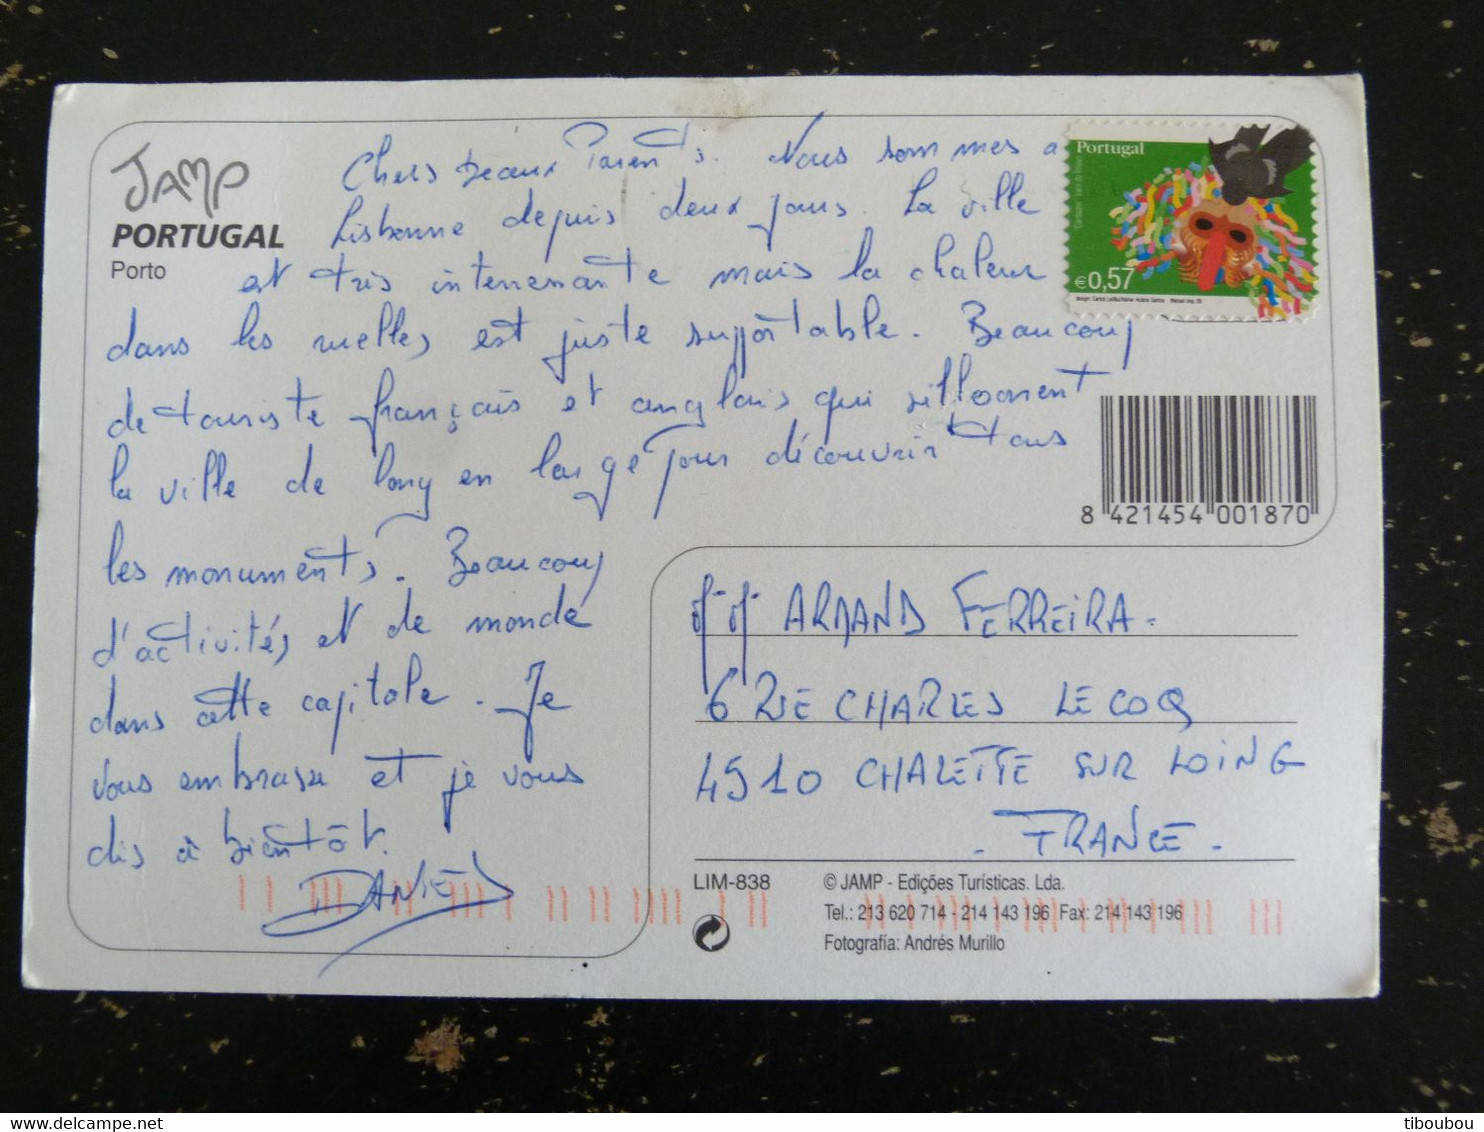 JAMP
PORTUGAL
Porto
Chers beaux Parents. Nous sommes a
Lisbonne depuis deux jours. La ville
est très interressante mais la chaleur
dans les ruelles est juste supportable. Beaucoup
de touriste français et anglais qui sillonnent
la ville de long en large pour découvrir tous
les monuments. Beaucoup
d'activités et de monde
dans cette capitale. Je
vous embrasse et je vous
dis à bientôt.
DANIEL
Portugal
€0,57
8 421454 001870
ARMAND FERREIRA.
6 RUE CHARLES LECOQ
4510 CHALETTE SUR LOING
- FRANCE -
LIM-838
© JAMP - Edições Turísticas. Lda.
Tel.: 213 620 714 - 214 143 196 Fax: 214 143 196
Fotografía: Andrés Murillo
tiboubou